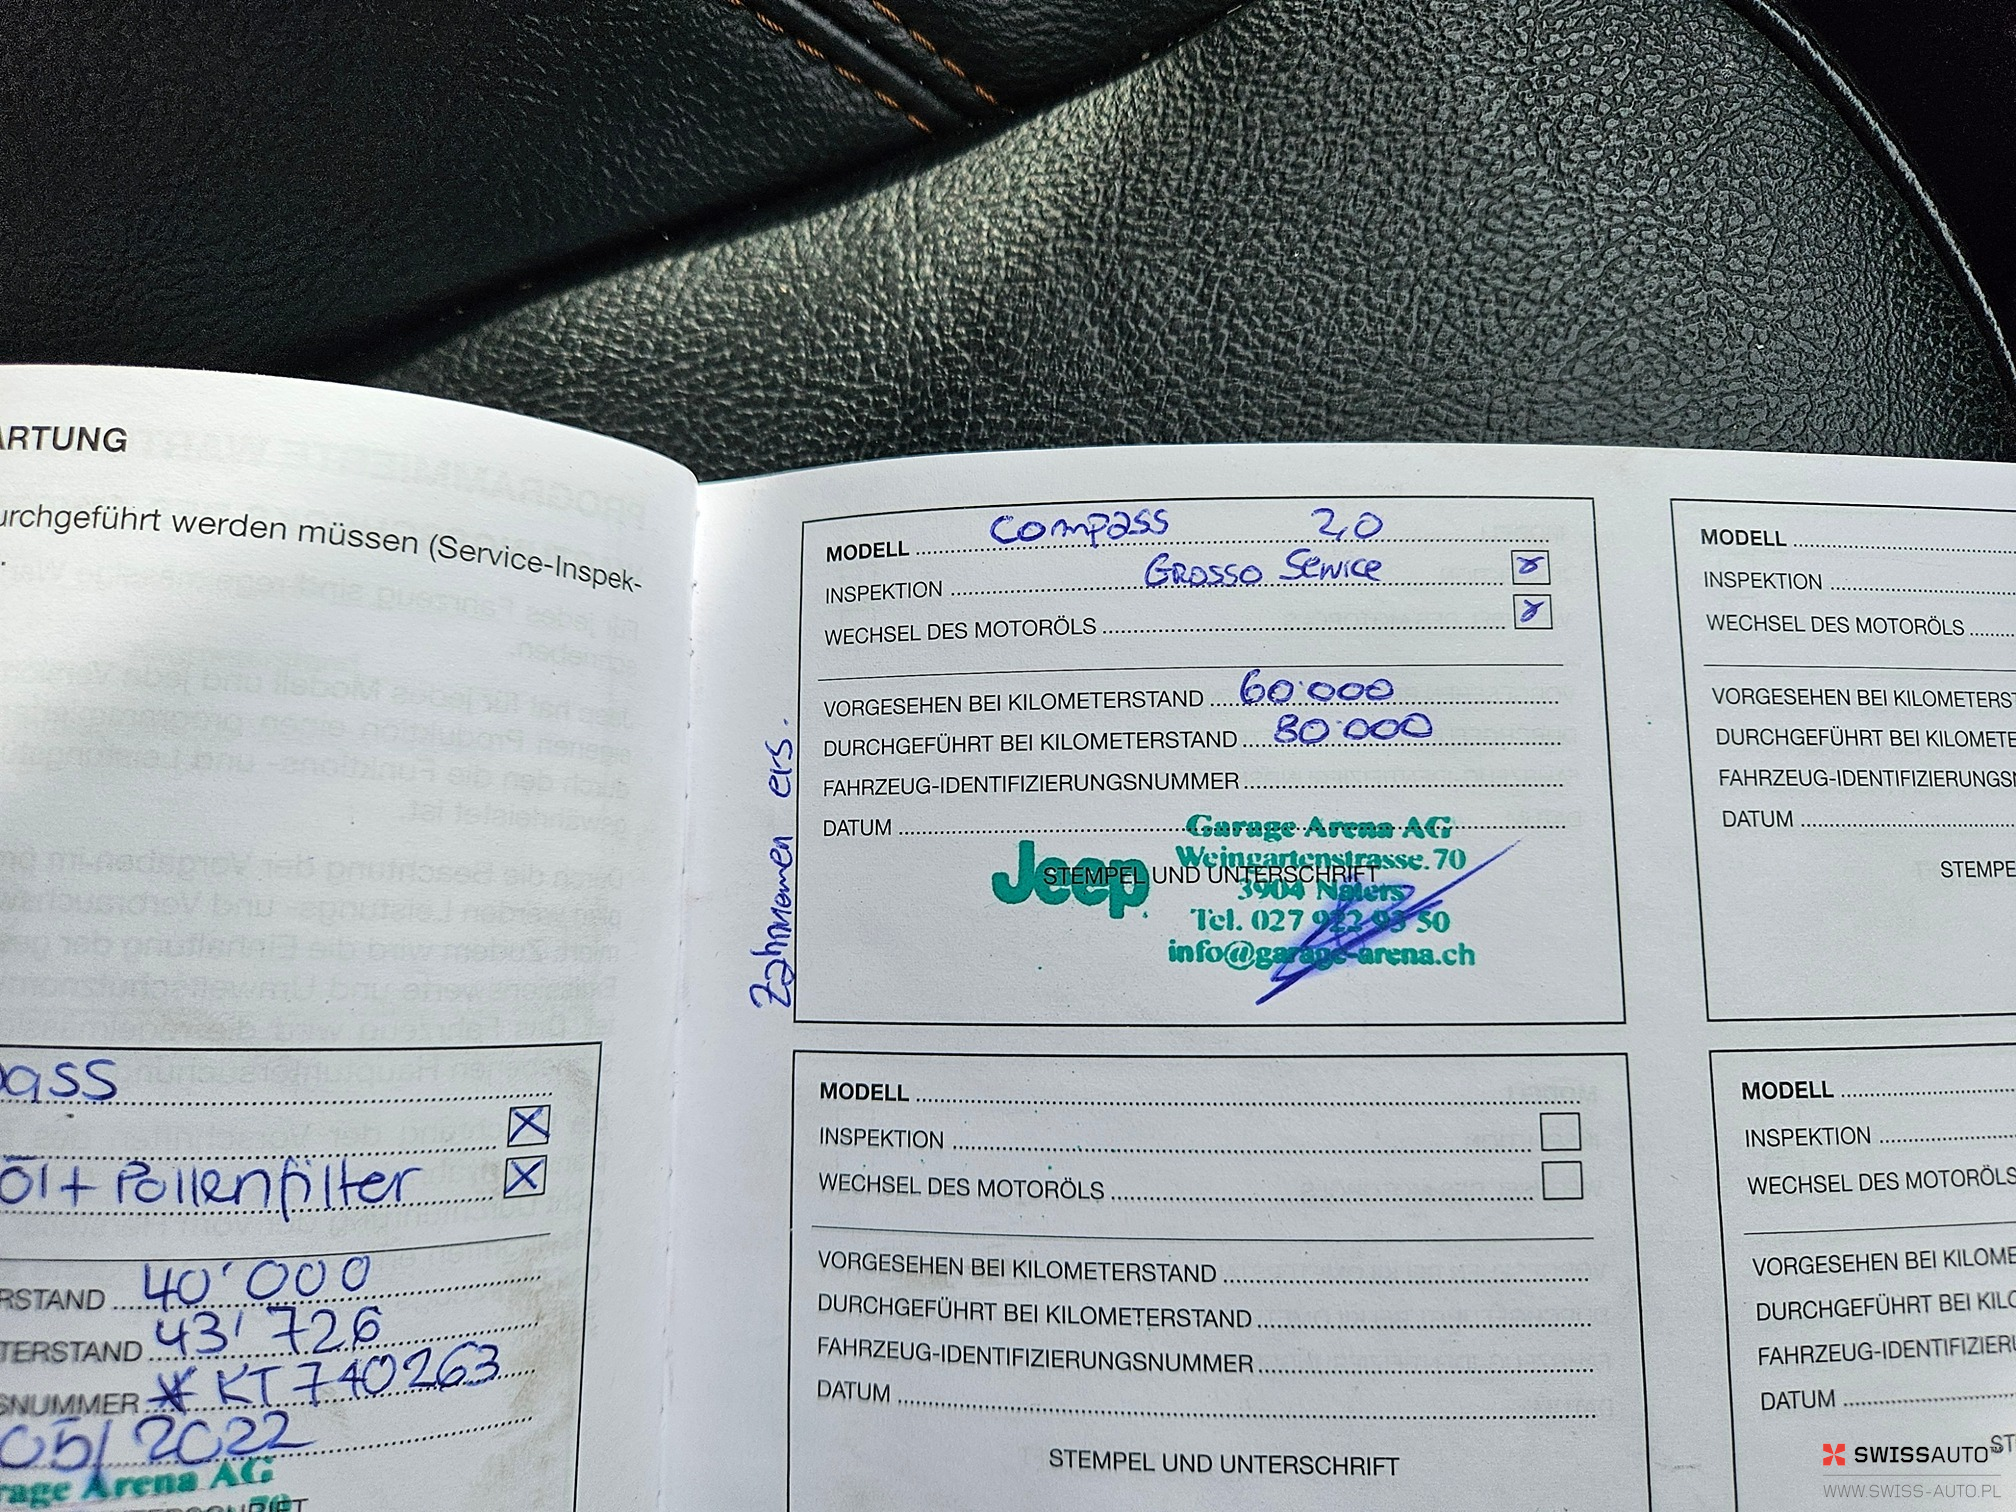 ARTUNG
urchgeführt werden müssen (Service-Inspek-
ass
Öl + Pollenfilter
RSTAND 40'000
TERSTAND 43'726
SNUMMER KT740263
05/2022
rage Arena AG
MODELL Compass 2,0
INSPEKTION Grosso Service
WECHSEL DES MOTORÖLS
VORGESEHEN BEI KILOMETERSTAND 60'000
DURCHGEFÜHRT BEI KILOMETERSTAND 80'000
FAHRZEUG-IDENTIFIZIERUNGSNUMMER
DATUM
Garage Arena AG
Weingartenstrasse 70
Jeep
STEMPEL UND UNTERSCHRIFT
3904 Naters
Tel. 027 922 93 50
info@garage-arena.ch
Zahnriemen ers.
MODELL
INSPEKTION
WECHSEL DES MOTORÖLS
VORGESEHEN BEI KILOMETERSTAND
DURCHGEFÜHRT BEI KILOMETERSTAND
FAHRZEUG-IDENTIFIZIERUNGSNUMMER
DATUM
STEMPEL UND UNTERSCHRIFT
MODELL
INSPEKTION
WECHSEL DES MOTORÖLS
VORGESEHEN BEI KILOMETERST
DURCHGEFÜHRT BEI KILOMETE
FAHRZEUG-IDENTIFIZIERUNGS
DATUM
STEMPE
MODELL
INSPEKTION
WECHSEL DES MOTORÖLS
VORGESEHEN BEI KILOME
DURCHGEFÜHRT BEI KILO
FAHRZEUG-IDENTIFIZIER
DATUM
ST
SWISSAUTO
WWW.SWISS-AUTO.PL